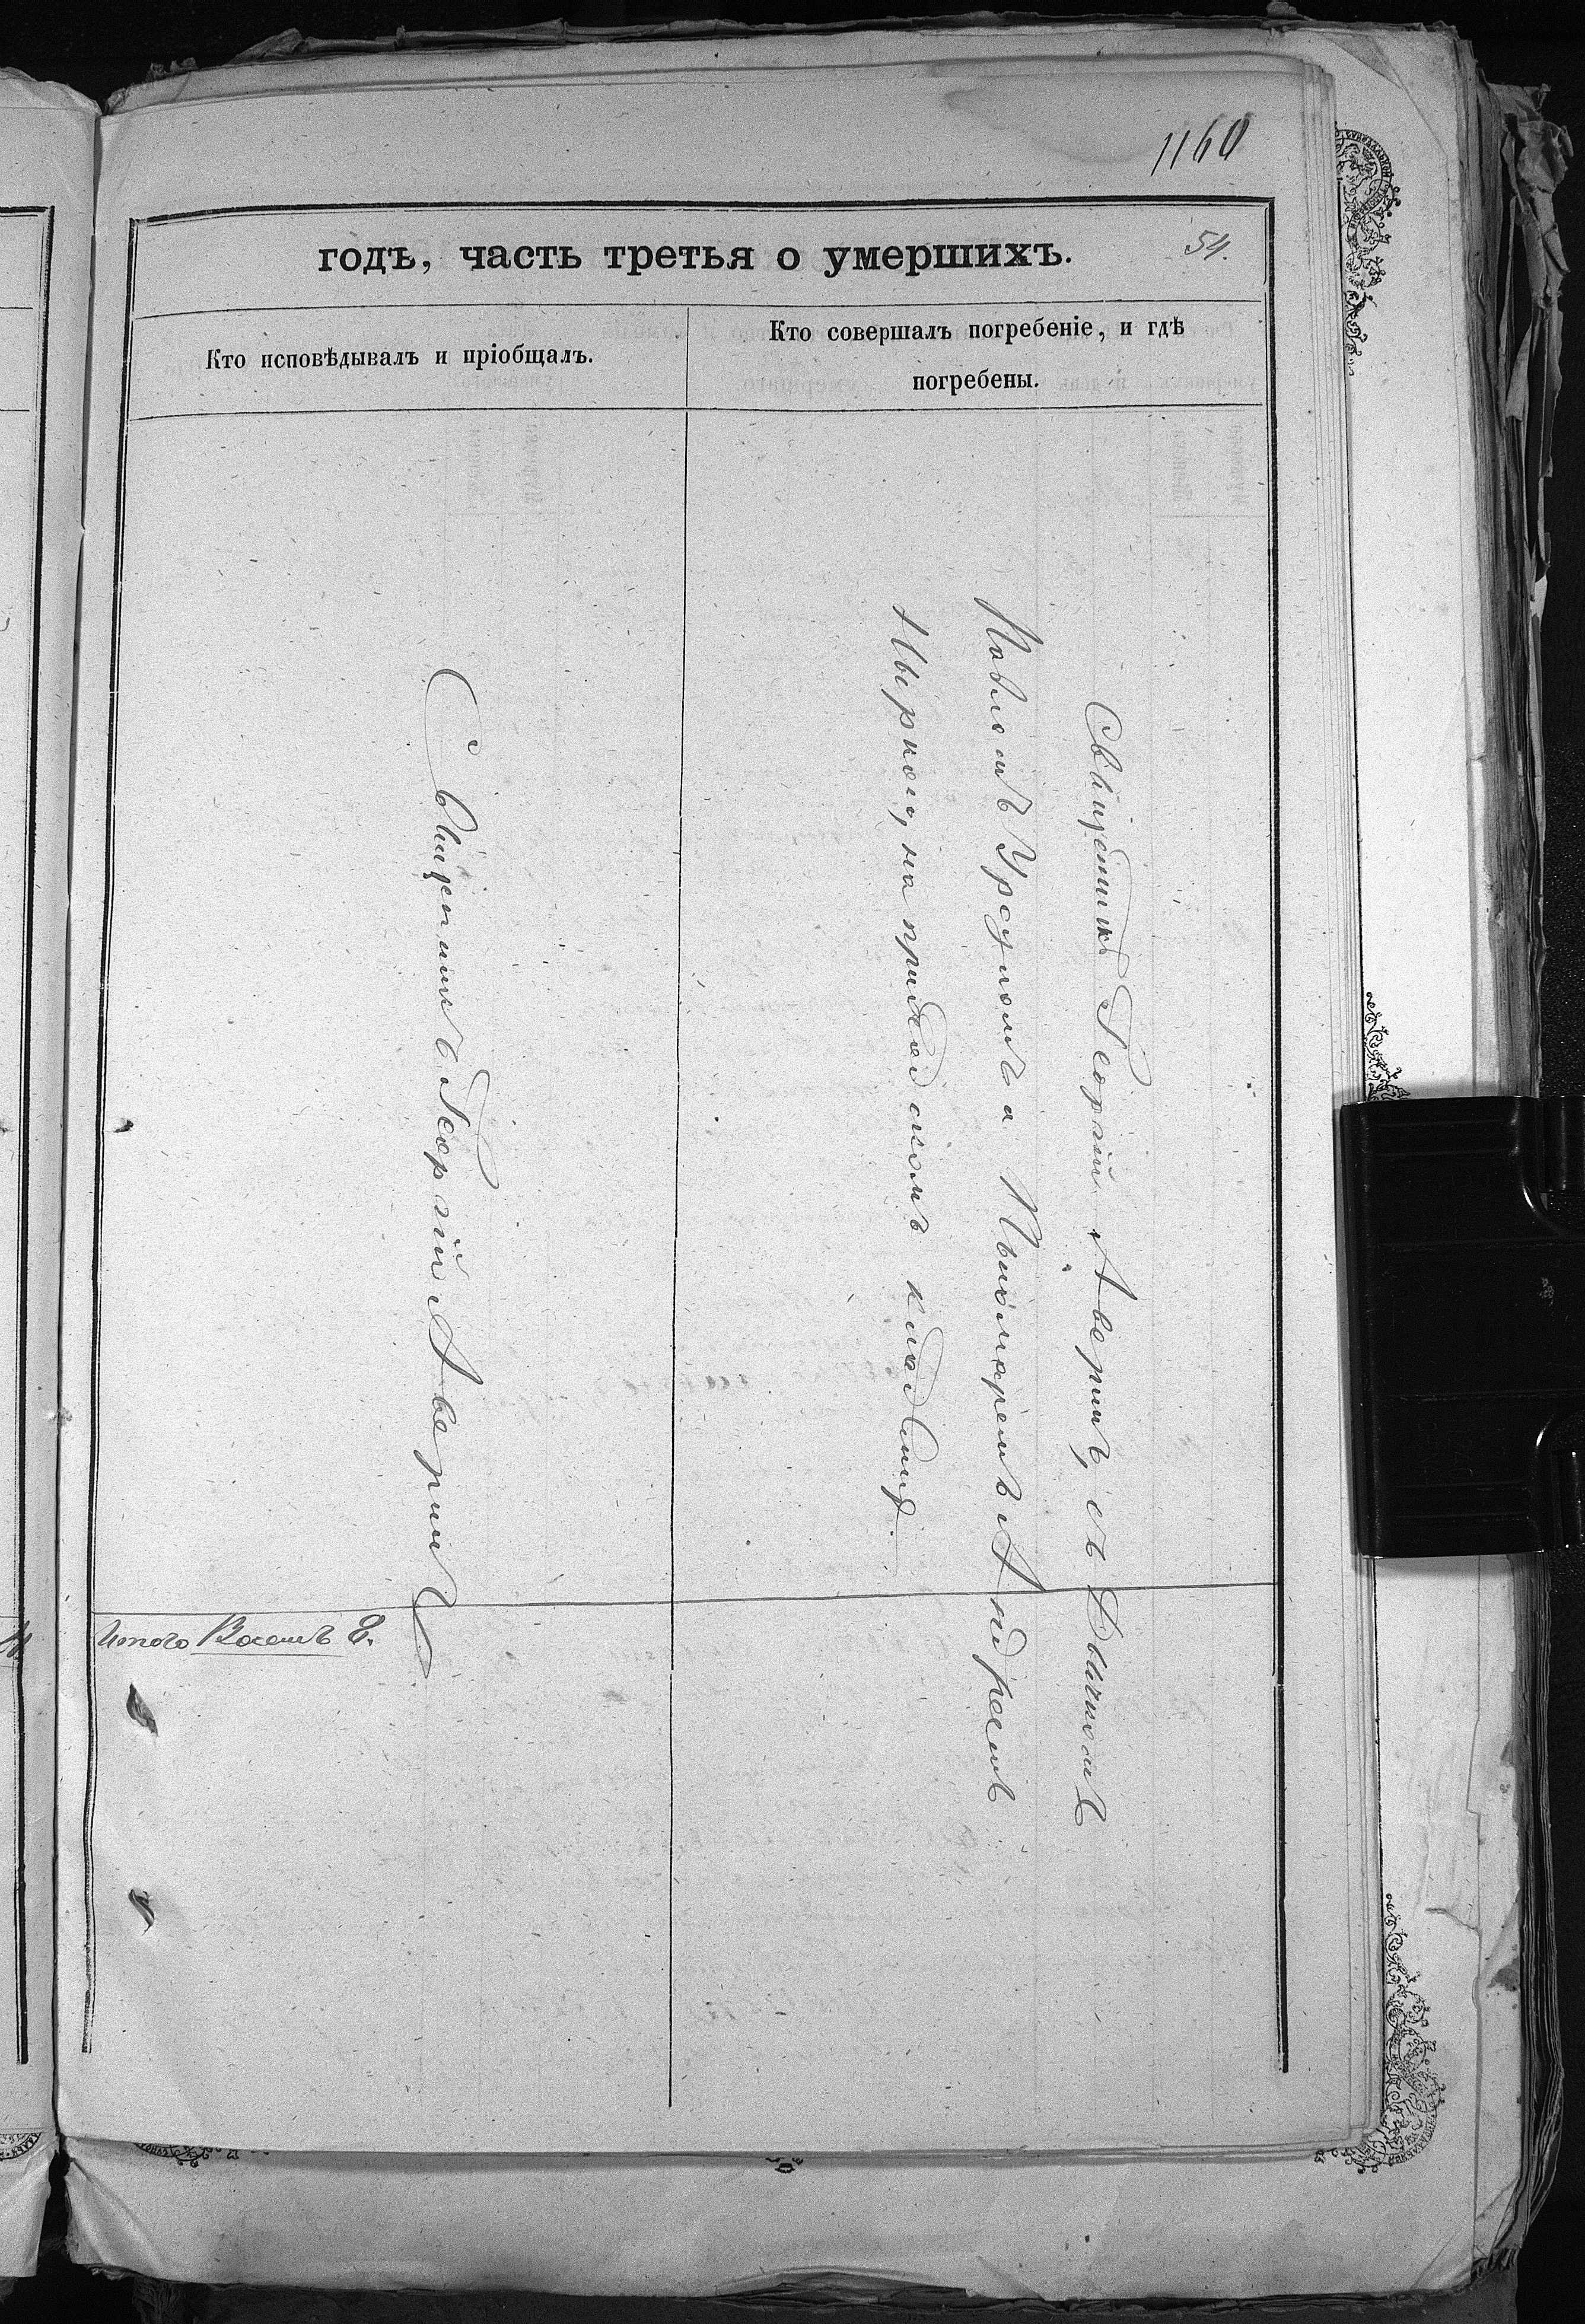 1160
годъ, часть третья о умершихъ.
54.
Кто исповѣдывалъ и пріобщалъ.
Кто совершалъ погребеніе, и гдѣ
погребены.
Священникъ Георгій Аверинъ
Священникъ Георгій Аверинъ, съ Дьячкомъ
Павломъ Урсуломъ и Пономаремъ Андреемъ
на приходскомъ кладбищѣ.
Итого Восемь 8.